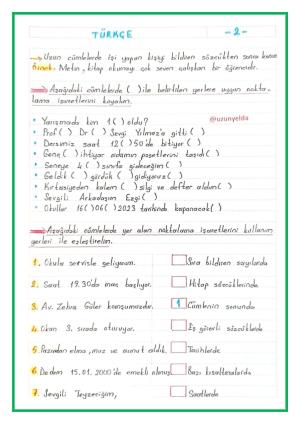 TÜRKÇE
- 2 -
Uzun cümlelerde işi yapan kişiyi bildiren sözcükten sonra konur.
Örnek: Metin, kitap okumayı çok seven çalışkan bir öğrencidir.
Aşağıdaki cümlelerde ( ) ile belirtilen yerlere uygun nokta-
lama işaretlerini koyalım.
@uzunyelda
• Yarışmada kan 1( ) oldu?
• Prof( ) Dr( ) Sevgi Yılmaz'a gitti( )
• Dersimiz saat 12( )50'de bitiyor( )
• Genç( ) ihtiyar adamın poşetlerini taşıdı( )
• Seneye 4( ) sınıfa gideceğim( )
• Geldik( ) gördük( ) gidiyoruz( )
• Kırtasiyeden kalem( ) silgi ve defter aldım( )
• Sevgili Arkadaşım Ezgi( )
• Okullar 16( )06( )2023 tarihinde kapanacak( )
Aşağıdaki cümlelerde yer alan noktalama işaretlerini kullanım
yerleri ile eşleştirelim.
1. Okula servisle geliyorum.
Sıra bildiren sayılarda
2. Saat 19.30'da maç başlıyor.
Kitap sözcüklerinde
3. Av. Zehra Güler komşumuzdur.
1 Cümlenin sonunda
4. Okan 3. sırada oturuyor.
Eş görevli sözcüklerde
5. Pazardan elma, muz ve armut aldık.
Tarihlerde
6. Dedem 15.01.2000'de emekli olmuş.
Bazı kısaltmalarda
7. Sevgili Teyzeciğim,
Saatlerde